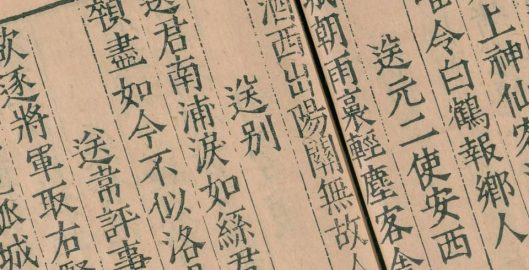 上神仙客
令白鶴報鄉人
送元二使安西
城朝雨裛輕塵客舍
酒西出陽關無故人
送别
送君南浦淚如絲君
顇盡如今不似洛
送韋評事
欲逐將軍取右賢
孤城